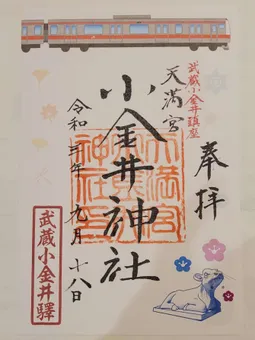 奉拝
武蔵小金井鎮座
天満宮
小金井神社
令和三年 九月 十八日
武蔵小金井驛